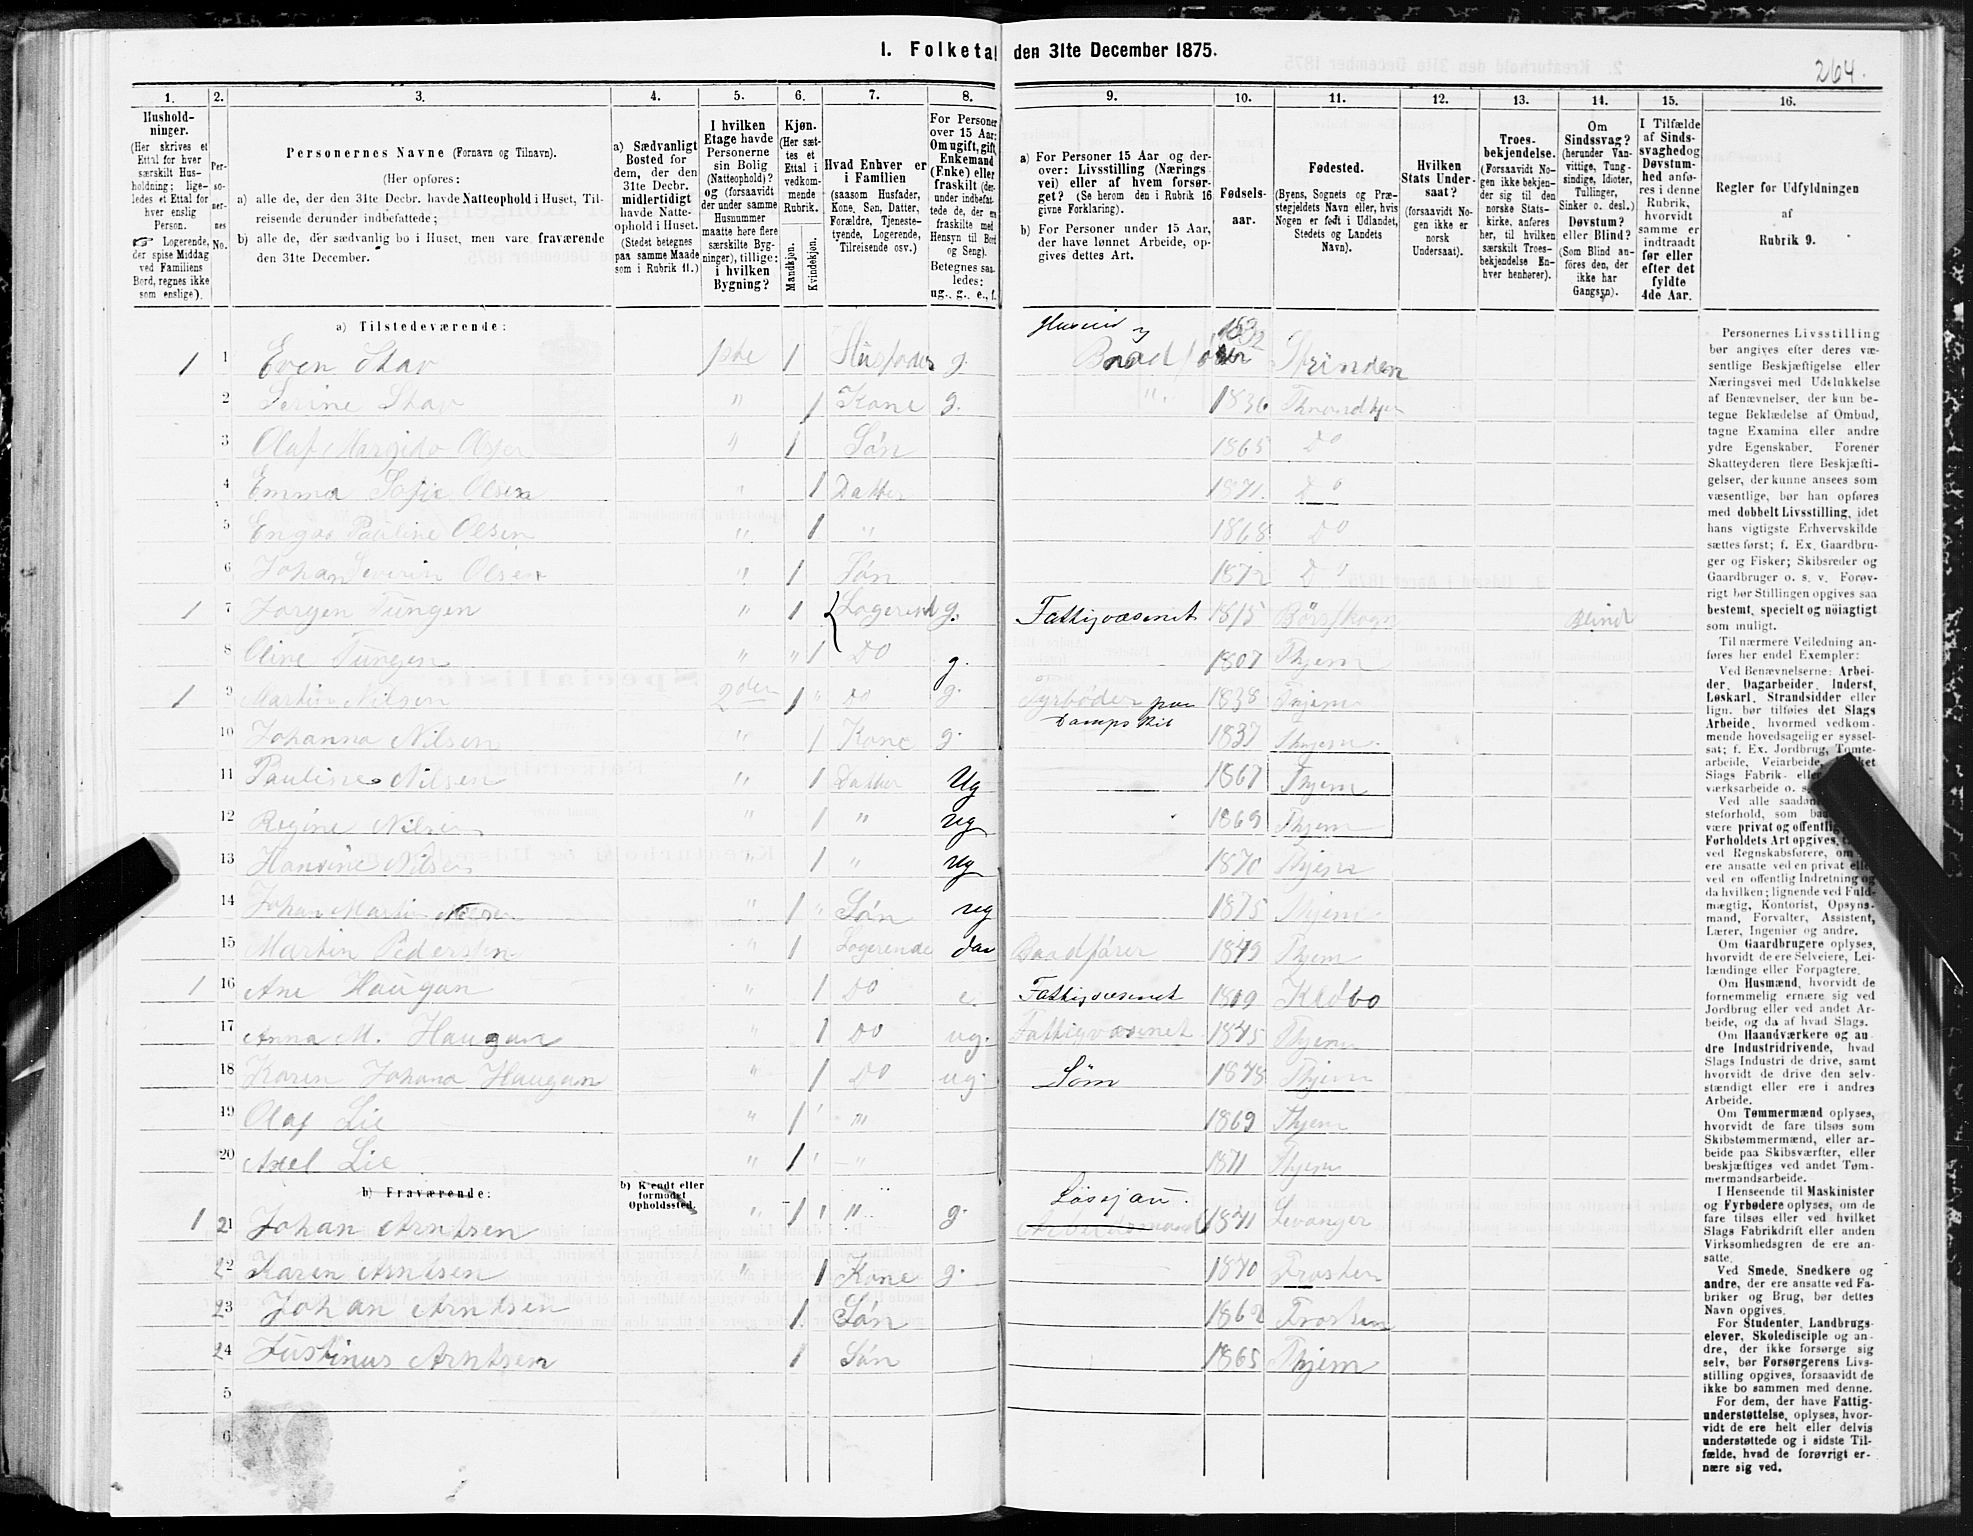 1. Folketal den 31te December 1875.
264.
1.
2.
3.
4.
5.
6.
7.
8.
9.
10.
11.
12.
13.
14.
15.
16.
Hushold-
ninger.
(Her skrives et
Ettal for hver
særskilt Hus-
holdning; lige-
ledes et Ettal for
hver enslig
Person.
☞ Logerende,
der spise Middag
ved Familiens
Bord, regnes ikke
som enslige).
Per-
so-
ner-
nes
No.
Personernes Navne (Fornavn og Tilnavn).
(Her opføres:
a) alle de, der den 31te Decbr. havde Natteophold i Huset, Til-
reisende derunder indbefattede;
b) alle de, der sædvanlig bo i Huset, men vare fraværende
den 31te December.
a) Sædvanligt
Bosted for
dem, der den
31te Decbr.
midlertidigt
havde Natte-
ophold i Huset.
(Stedet betegnes
paa samme Maade
som i Rubrik 11.)
I hvilken
Etage havde
Personerne
sin Bolig
(Natteophold)?
og (forsaavidt
der under samme
Husnummer
maatte høre flere
særskilte Byg-
ninger), tillige:
i hvilken
Bygning?
Kjøn.
(Her sæt-
tes et
Ettal i
vedkom-
mende
Rubrik.
Mandkjøn.
Kvindekjøn.
Hvad Enhver er
i Familien
(saasom Husfader,
Kone, Søn, Datter,
Forældre, Tjeneste-
tyende, Logerende,
Tilreisende osv.)
For Personer
over 15 Aar:
Om ugift, gift,
Enkemand
(Enke) eller
fraskilt (der-
under indbefat-
tede de, der er
fraskilte med
Hensyn til Bord
og Seng).
Betegnes saa-
ledes:
ug., g., e., f.
a) For Personer 15 Aar og der-
over: Livsstilling (Nærings
vei) eller af hvem forsør-
get? (Se herom den i Rubrik 16
givne Forklaring).
b) For Personer under 15 Aar,
der have lønnet Arbeide, op-
gives dettes Art.
Fødsels-
aar.
Fødested.
(Byens, Sognets og Præ-
stegjeldets Navn eller, hvis
Nogen er født i Udlandet,
Stedets og Landets
Navn).
Hvilken
Stats Under-
saat?
(forsaavidt No-
gen ikke er
norsk
Undersaat).
Troes-
bekjendelse.
(Forsaavidt No-
gen ikke bekjen-
der sig til den
norske Stats-
kirke, anføres
her, til hvilken
særskilt Troes-
bekjendelse En-
hver henhører).
Om
Sindssvag?
(herunder Van-
vittige, Tung-
sindige, Idioter,
Tullinger,
Sinker o. desl.)
Døvstum?
eller Blind?
(Som Blind an-
føres den, der
ikke har
Gangsyn).
I Tilfælde
af Sinds-
svaghed og
Døvstum-
hed anfø-
res i denne
Rubrik,
hvorvidt
samme er
indtraadt
før eller
efter det
fyldte
4de Aar.
Regler for Udfyldningen
af
Rubrik 9.
a) Tilstedeværende:
1 1 Even Stav 1ste 1 Husfader g. Huseier og 1832 Strinden
2 Serine Stav " 1 Kone g. ". 1836 Throndhjem
3 Olaf " 1 Søn 1865 Do
4 Emma Sofie Olsen " 1 Datter 1871. Do
5 Pauline Olsen " 1 " 1868 Do
6 Johan Severin Olsen " 1 Søn 1872 Do
1 7 Jorgen Tungen " 1 Logerend g. Fattigvæsenet 1815 Børsskogn Blind
8 Oline Tungen " " 1 Do g. 1807 Thjem
1 9 Martin Nilsen 2den 1 " Do g. Fyrbøder paa 1838 Thjem
Dampskib
10 Johanna Nilsen " 1 Kone g. 1837 Thjem
11 Pauline Nilsen " 1 Datter Ug 1867 Thjem
12 Regine Nilsen " 1 " ug 1869 Thjem
13 Hansine Nilsen " 1 " Ug 1870 Thjem
14 Johan Martin Nilsen " 1 " Søn ug 1875 Thjem
15 Martin Pedersen " 1 Logerende Baadfører 1849 Thjem
1 16 Ane Haugan " 1 Do e. Fattigvæsenet 1809 Klæbo
17 Anna M. Haugan " 1 Do ug. Fattigvæsenet 1845 Thjem
18 Karen Johana Haugan " 1 Do ug. Søm 1848 Thjem
19 Olaf Lie " 1 " 1869 Thjem
20 Axel Lie " 1 " 1871 Thjem
b) Fraværende:
b) Kjendt eller
formodet
Opholdssted.
1 21 Johan Arntsen " 1 " g. Løsejau. Arbeidsmand 1841 Levanger
22 Karen Arntsen " 1 Kone g. 1840 Frosten
23 Johan Arntsen 1 Søn 1862 Frosten
24 Justinus Arntsen 1 Søn 1865 Thjem
5
6
Personernes Livsstilling
bør angives efter deres væ-
sentlige Beskjæftigelse eller
Næringsvei med Udelukkelse
af Benævnelser, der kun be-
tegne Beklædelse af Ombud,
tagne Examina eller andre
ydre Egenskaber. Forener
Skatteyderen flere Beskjæfti-
gelser, der kunne ansees som
væsentlige, bør han opføres
med dobbelt Livsstilling, idet
hans vigtigste Erhvervskilde
sættes først; f. Ex. Gaardbru-
ger og Fisker; Skibsreder og
Gaardbruger o. s. v. Forøv-
rigt bør Stillingen opgives saa
bestemt, specielt og nøiagtigt
som muligt.
Til nærmere Veiledning an-
føres her endel Exempler:
Ved Benævnelserne: Arbei-
der, Dagarbeider, Inderst,
Løskarl, Strandsidder eller
lign. bør tilføies det Slags
Arbeide, hvormed vedkom-
mende hovedsagelig er syssel-
sat; f. Ex. Jordbrug, Tomte-
arbeide, Veiarbeide,
Slags Fabrik- eller
værksarbeide o. s.
Ved alle
steforhold, som
være privat og offentlig
Forholdets Art opgives,
ved Regnskabsførere, om
ere ansatte ved en privat eller
ved en offentlig Indretning og
da hvilken; lignende ved Fuld-
mægtig, Kontorist, Opsyns-
mand, Forvalter, Assistent,
Lærer, Ingeniør og andre.
Om Gaardbrugere oplyses,
hvorvidt de ere Selveiere, Lei-
lændinge eller Forpagtere.
Om Husmænd, hvorvidt de
fornemmelig ernære sig ved
Jordbrug eller ved andet Ar-
beide, og da af hvad Slags.
Om Haandværkere og an-
dre Industridrivende, hvad
Slags Industri de drive, samt
hvorvidt de drive den selv-
stændigt eller ere i andres
Arbeide.
Om Tømmermænd oplyses,
hvorvidt de fare tilsøs som
Skibstømmermænd, eller ar-
beide paa Skibsværfter, eller
beskjæftiges ved andet Tøm-
mermandsarbeide.
I Henseende til Maskinister
og Fyrbødere oplyses, om de
fare tilsøs eller ved hvilket
Slags Fabrikdrift eller anden
Virksomhedsgren de ere an-
satte.
Ved Smede, Snedkere og
andre, der ere ansatte ved Fa-
briker og Brug, bør dettes
Navn opgives.
For Studenter, Landbrugs-
elever, Skoledisciple og an-
dre, der ikke forsørge sig
selv, bør Forsørgerens Livs-
stilling opgives, forsaavidt de
ikke bo sammen med denne.
For dem, der have Fattig-
understøttelse, oplyses, hvor-
vidt de ere helt eller delvis
understøttede og i sidste Til-
fælde, hvad de forøvrigt er-
nære sig ved.